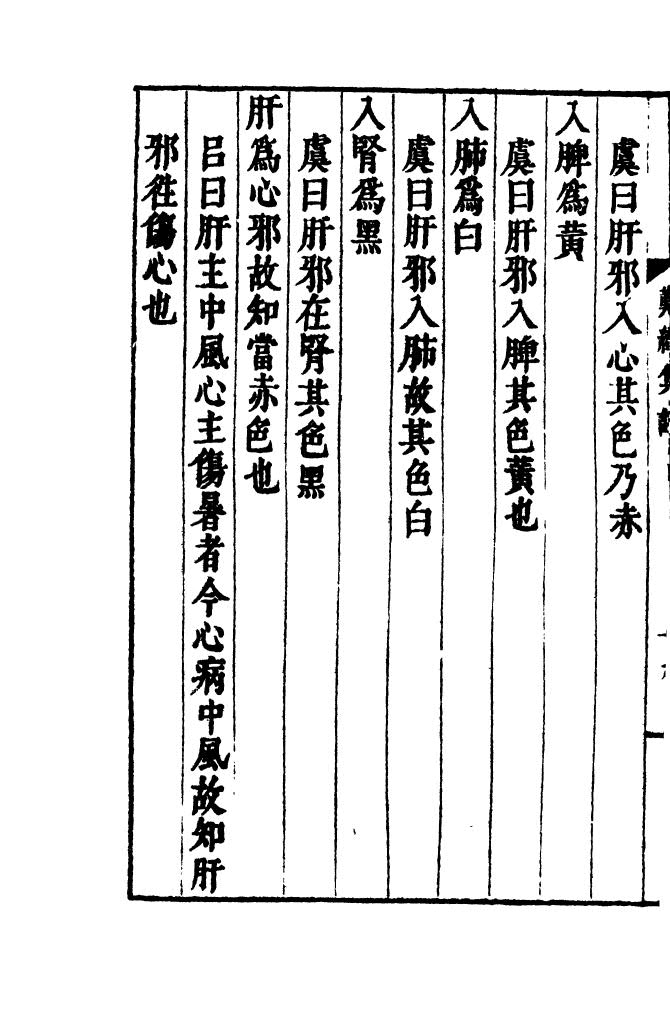 虞曰肝邪入心其色乃赤
入脾爲黄
虞曰肝邪入脾其色黄也
入肺爲白
虞曰肝邪入肺故其色白
入腎爲黑
虞曰肝邪在腎其色黑
肝爲心邪故知當赤色也
吕曰肝主中風心主傷暑者今心病中風故知肝
邪徃傷心也